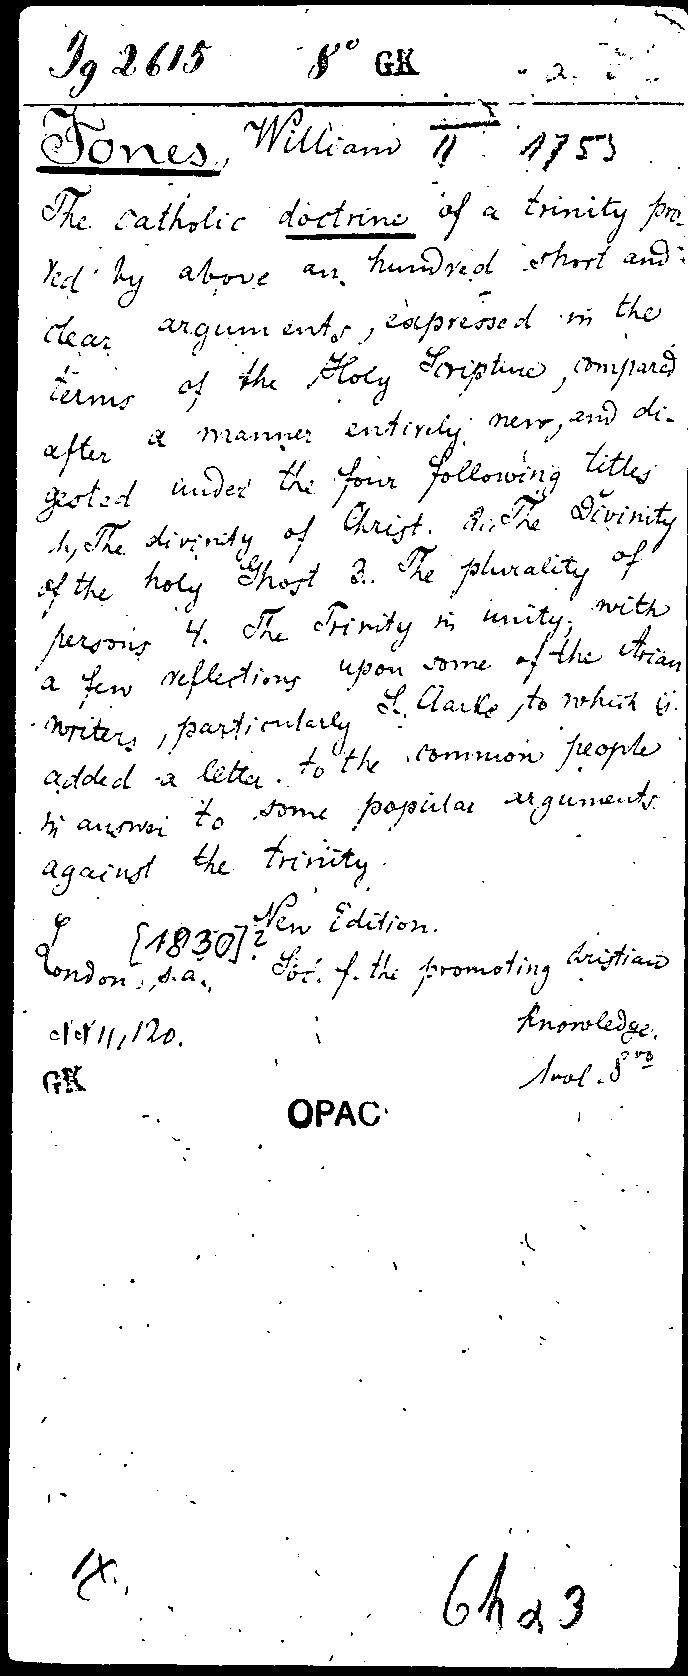 Jg 2615 8° GK
Jones, William II 1753
The catholic doctrine of a trinity pro-
ved by above an hundred short and
clear arguments, expressed in the
terms of the Holy Scripture, compared
after a manner entirely new, and di-
gested under the four following titles
1, The divinity of Christ. 2., The Divinity
of the holy Ghost 3.. The plurality of
persons 4. The Trinity in unity; with
a few reflections upon some of the Arian
writers, particularly S. Clarke, to which is
added a letter to the common people
in answer to some popular arguments
against the trinity.
[1830]? New Edition.
London, s.a., Soc. f. the promoting christian
knowledge.
11,120.
GK 1 vol. 8vo
OPAC
6h 3